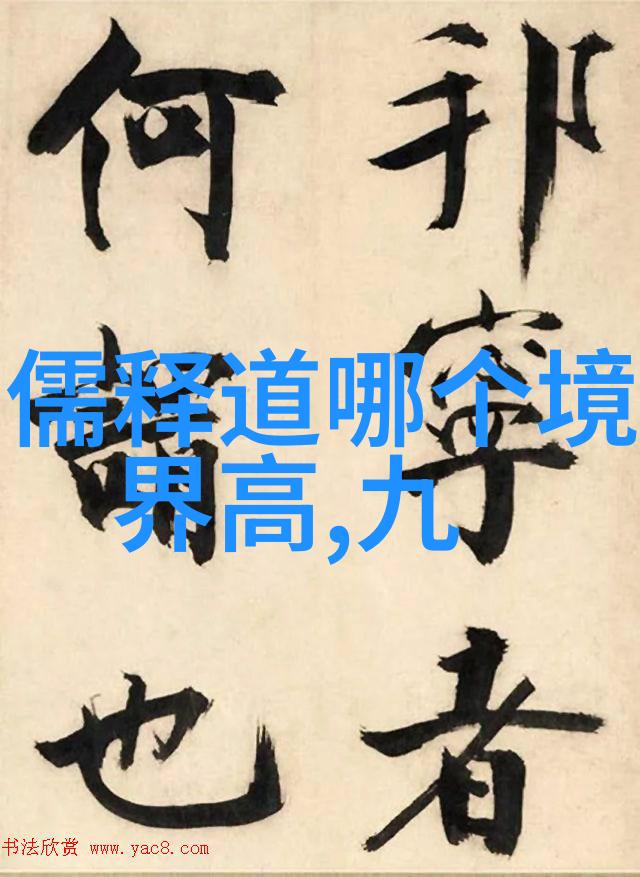 邦寧者
何也
儒释道哪个境
界高,九
书法欣赏 www.yac8.com